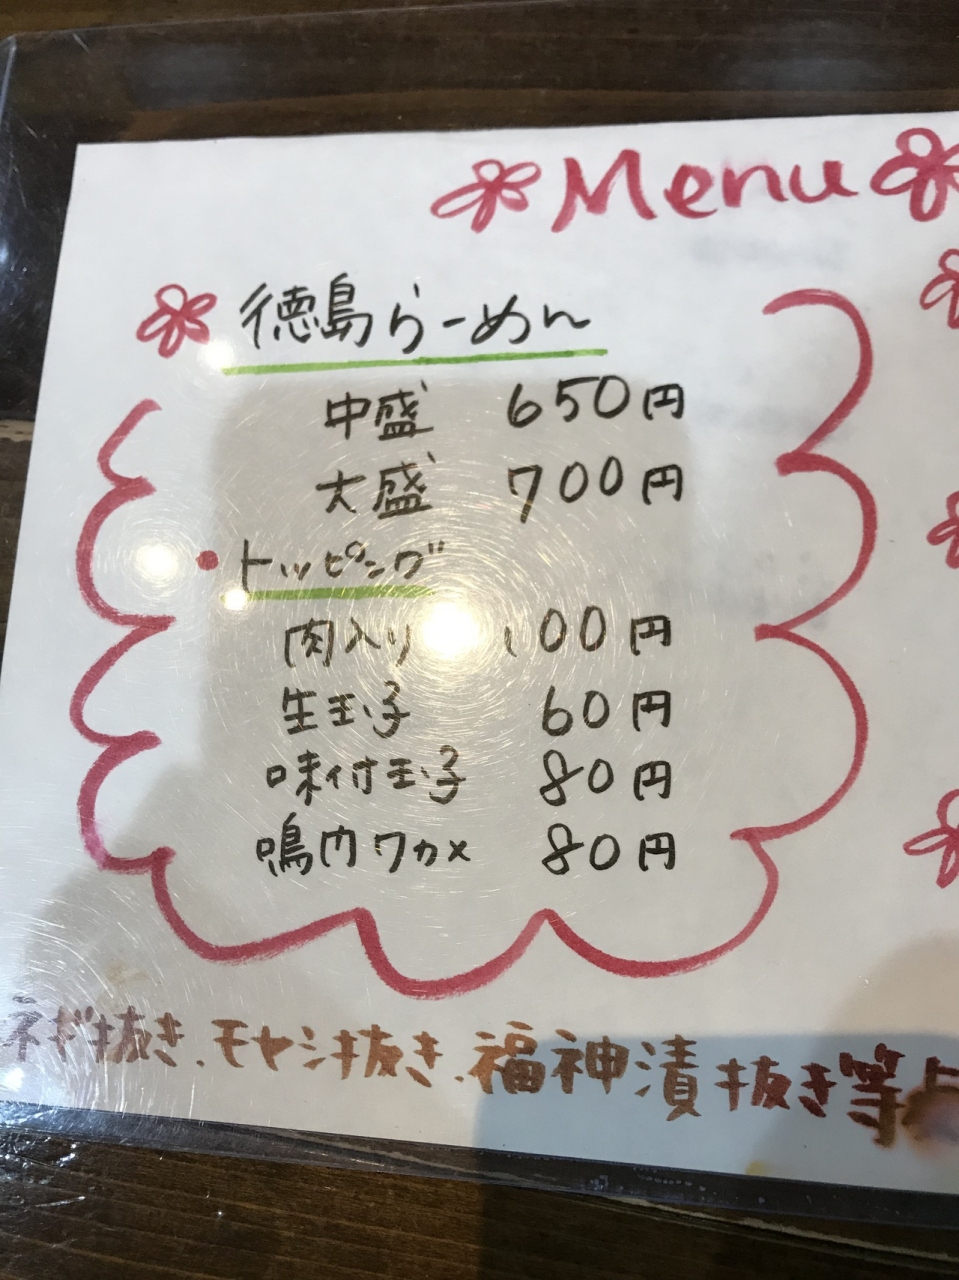 Menu
徳島らーめん
中盛 650円
大盛 700円
トッピング
肉入り 100円
生玉子 60円
味付玉子 80円
鳴門ワカメ 80円
ネギ抜き、モヤシ抜き、福神漬抜き等